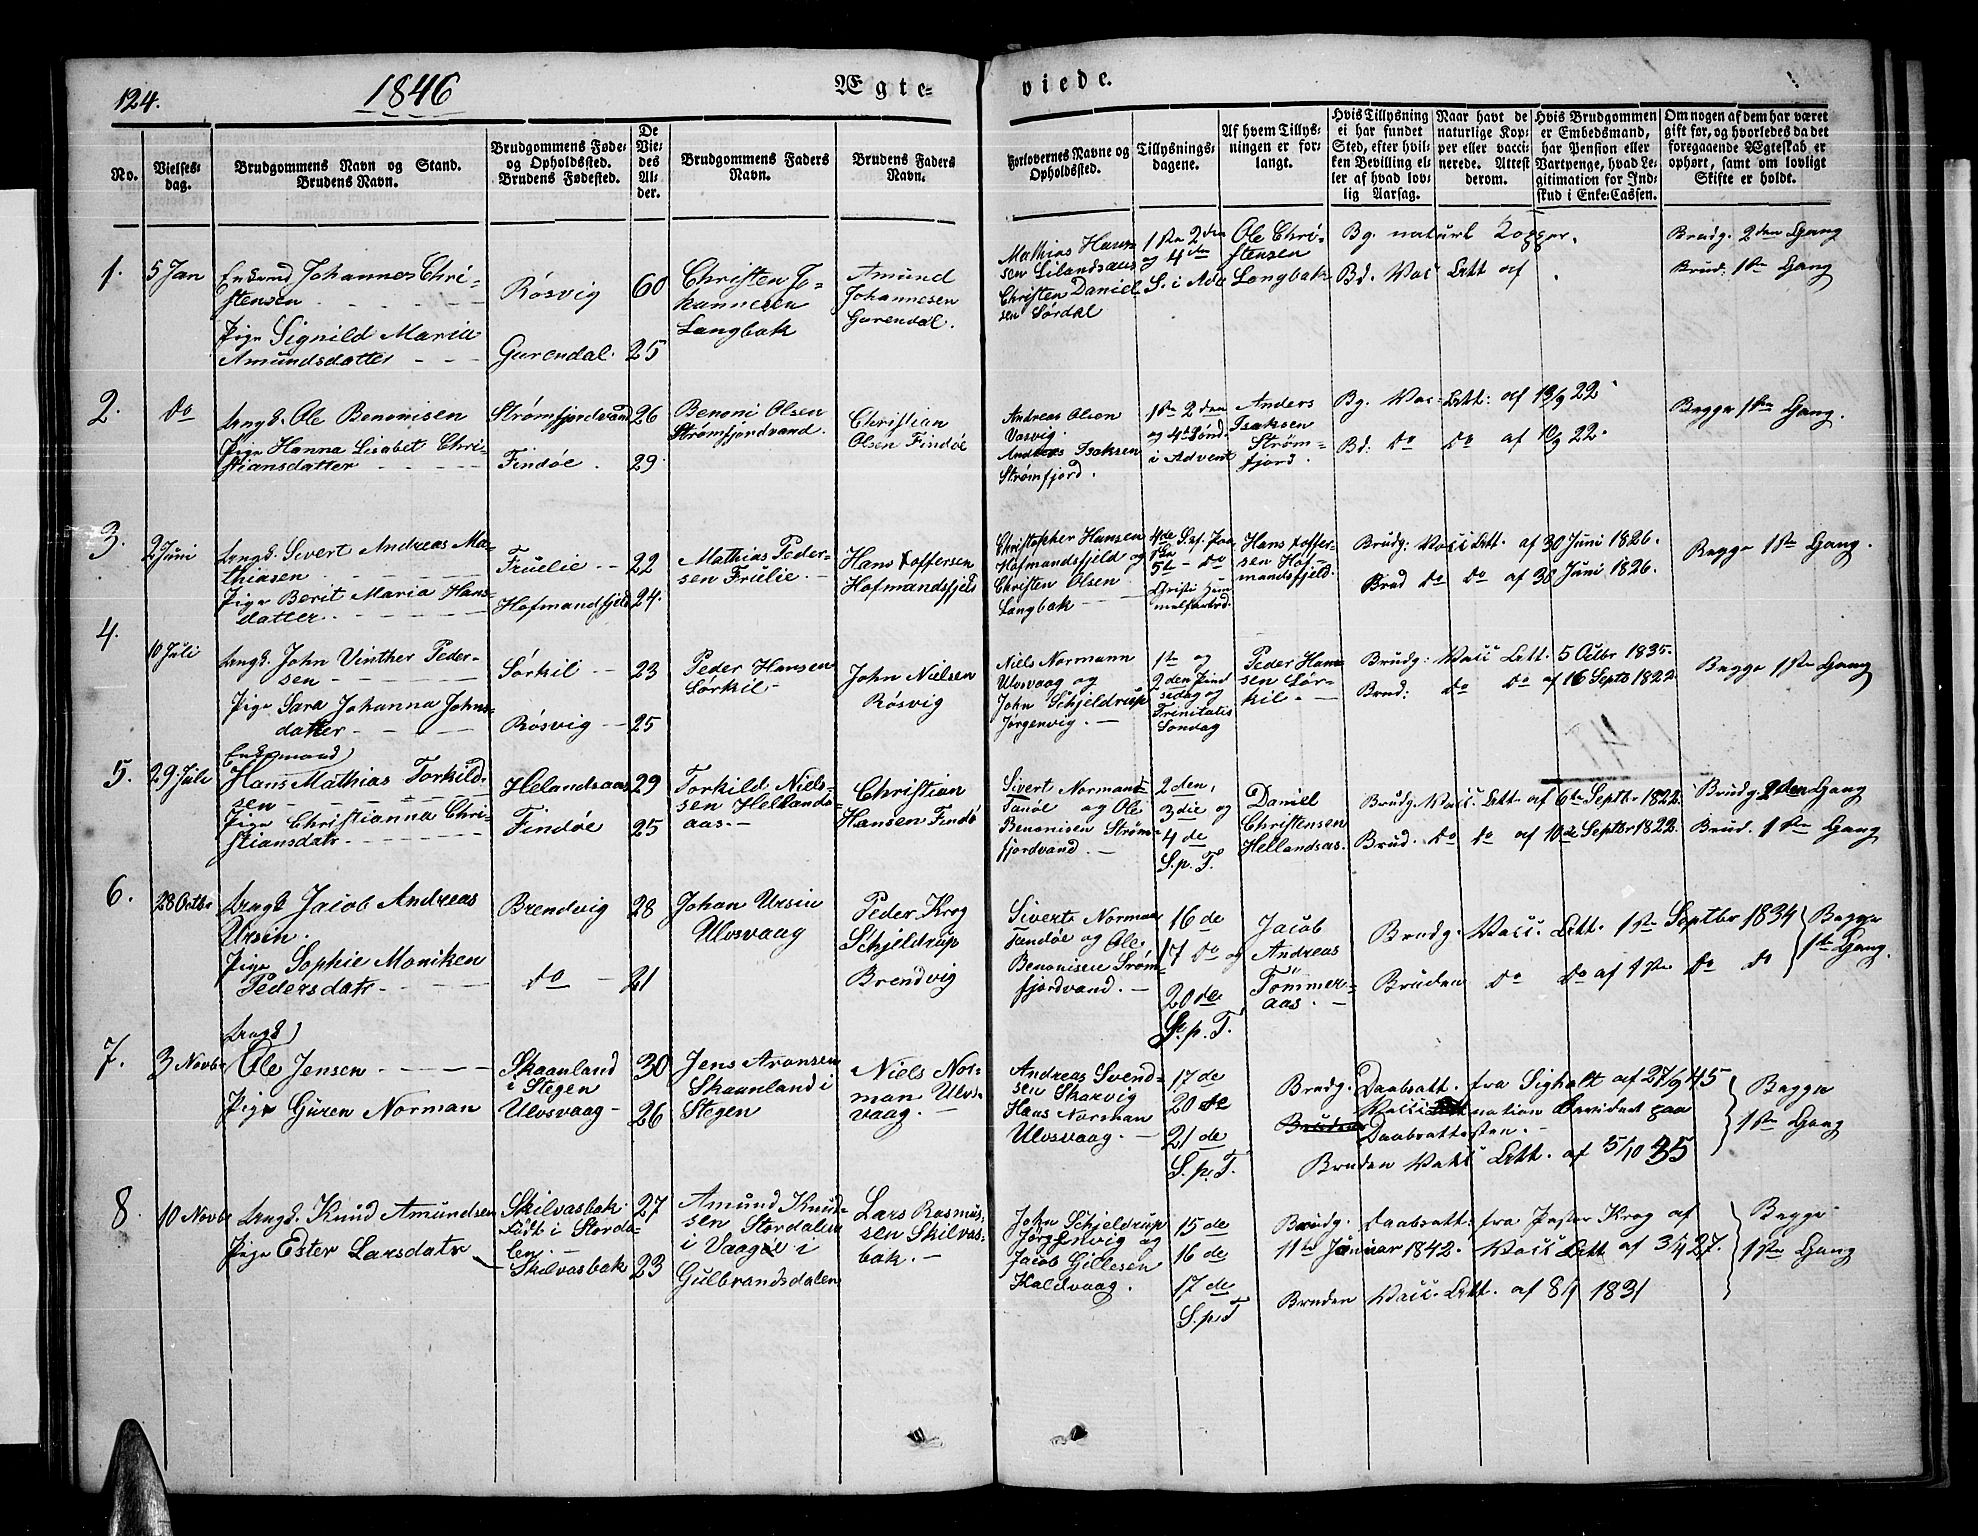 124.
1846
Ægte-
viede.
No.
Vielses-
dag.
Brudgommens Navn og Stand.
Brudens Navn.
Brudgommens Føde-
og Opholdssted.
Brudens Fødested.
De
Vie-
des
Al-
der.
Brudgommens Faders
Navn.
Brudens Faders
Navn.
Forlovernes Navne og
Opholdssted.
Tillysnings-
dagene.
Af hvem Tillys-
ningen er for-
langt.
Hvis Tillysning
ei har fundet
Sted, efter hvil-
ken Bevilling el-
ler af hvad lov-
lig Aarsag.
Naar havt de
naturlige Kop-
per eller vacci-
nerede. Attest
derom.
Hvis Brudgommen
er Embedsmand,
har Pension eller
Vartpenge, hvad Le-
gitimation for Ind-
skud i Enke-Cassen.
Om nogen af dem har været
gift før, og hvorledes da det
foregaaende Ægteskab er
ophørt, samt om lovligt
Skifte er holdt.
1.
5 Jan
Enkemd Johannes Chri-
stensen
Pige Signild Maria
Amundsdatter
Rósvig
Gurendal.
60
25
Christen Jo-
hannesen
Langbak
Amund
Johannesen
Gurendal.
Mathias Han-
sen Eilandsaas
Christen Daniel-
sen Sørdal
1ste 2den
og 4de
S. i Adv
Ole Chri-
stensen
Langbak
Bg. naturl Kopper.
Bd. Vac Att af
Brudg. 2den Gang
Brud: 1ste Gang
2.
do
Ungk. Ole Benonisen
Pige Hanna Lisabet Chri-
stiansdatter
Strømfjordvand
Findøe.
26
29.
Benoni Olsen
Strømfjordvand.
Christian
Olsen Findöe
Andreas Olsen
Vasvig.
Andreas Isaksen
Strømfjord.
1ste 2den
og 4de Sönd.
i Advent
Anders
Isaksen
Strøm-
fjord.
Bg. Vac. Att: af 19/9 22.
Bd: do do af 10/9 22.
Begge 1ste Gang.
3.
2 Juni
Ungk. Sivert Andreas Ma-
thiasen
Pige Berit Maria Hans-
datter
Fruelie
Hofmandfjeld
22
24.
Mathias Peder-
sen Frülie.
Hans Xoffersen
Hofmandsfjeld
Christopher Hansen
Hofmandsfjeld og
Christen Olsen
Langbak
4de S. ef. Paa
ske
5te - do
Christi Him-
melfartsd.
Hans Xoffer-
sen Hof-
mandsfjeld.
Brudg: Vacc Att. af 30 Juni 1826.
Brud do do af 30 Juni 1826.
Begge 1ste Gang.
4.
10 Juli
Ungk. John Vinther Peder-
sen
Pige Sara Johanna Johns-
datter
Sórkil
Rösvig
23
25
Peder Hansen
Sórkil
John Nielsen
Rösvig
Niels Normann
Ulvsvaag og
John Schjeldrup
Jørgenvig.
1ste og
2den Pind
sedag og
Trinitatis
Söndag
Peder Han-
sen Sör-
kil.
Brudg: Vacc Att. 5 Octbr 1835.
Brud: do do af 16 Septb 1822
Begge 1ste Gang
184
5.
29 Juli
Enkemand
Hans Mathias Torkild-
sen
Pige Christianna Chri-
stiansdatr
Helandsaas
Findöe
29
25
Torkild Niels-
sen Hellands-
aas.
Christian
Hansen Findö
Sivert Normand
Tanöe og Ole
Benonisen Strøm-
fjordvand.
2den,
3die og
4de
S. p. T.
Daniel
Christensen
Hellandsas.
Brudg. Vacc. Att. af 6te Septbr 1822.
Brud. do do af 10de Septbr 1822.
Brudg. 2den Gang
Brud. 1ste Gang
6.
28 Octbr
Ungk Jacob Andreas
Ursin.
Pige Sophie Moniken
Pedersdatr
Brendvig
do
28
21
Johan Ursin
Ulvsvaag
Peder Krog
Schjeldrup
Brendvig
Sivert Norman
Tandøe og Ole
Benonisen Strøm
fjordvand.
16de
17 do og
20de
S. p. T.
Jacob
Andreas
Tömmer-
aas.
Brudg. Vacc. Att. 1ste Septbr 1834
Bruden do do af 1ste do do
Begge
1ste Gang.
7.
3 Novbr
Ungk
Ole Jensen
Pige Güren Norman
Skaanland
i Stegen
Ulvsvaag
30
26
Jens Aronsen
Skaanland i
Stegen
Niels Nor-
man Ulvs-
vaag.
Andreas Svend-
sen Skarvig
Hans Norman
Ulvsvaag.
17de
20de
21de
S. p. T.
Brudg. Daabsatt. fra Sigholt af 27/9 45
Vaccination bevidnet paa
Daabsattesten.
Bruden Vacc Att. af 5/10 35
Begge
1ste Gang
8.
10 Novbr
Ungk. Knud Amundsen
Pige Ester Larsdatr
Skilvasbak
Födt i Storda-
len.
Skilvasbak
27
23
Amund Knud-
sen Stordalen
i Vaagöe i
Gulbrandsdalen
Lars Rasmus-
sen Skilvas-
bak.
John Schjeldrup
Jørgenvig og
Jacob Gillesen
Kaldvaag.
15de
16de
17de
S. p. T
Brudg. Daabsatt. fra Pester Krog af
11te Januar 1842. Vacc Att af 3/4 27.
Bruden Vacc. Att. af 8/9 1831
Begge
1ste Gang